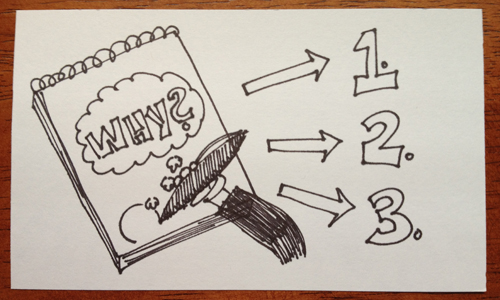 WHY?
1.
2.
3.